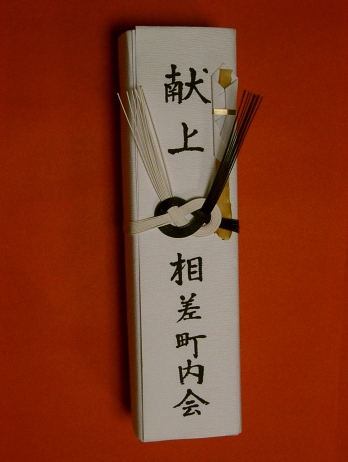 献上
相差町内会